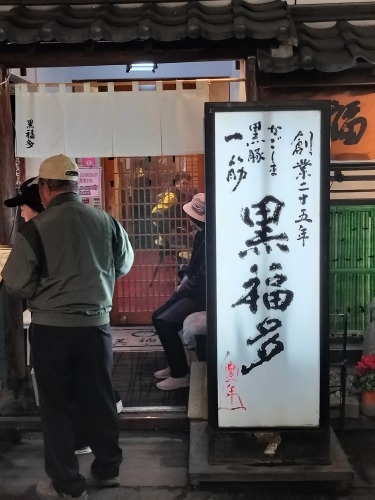 創業二十五年
かごしま
黒豚
一筋
黒福多
豊年
黒福多
福